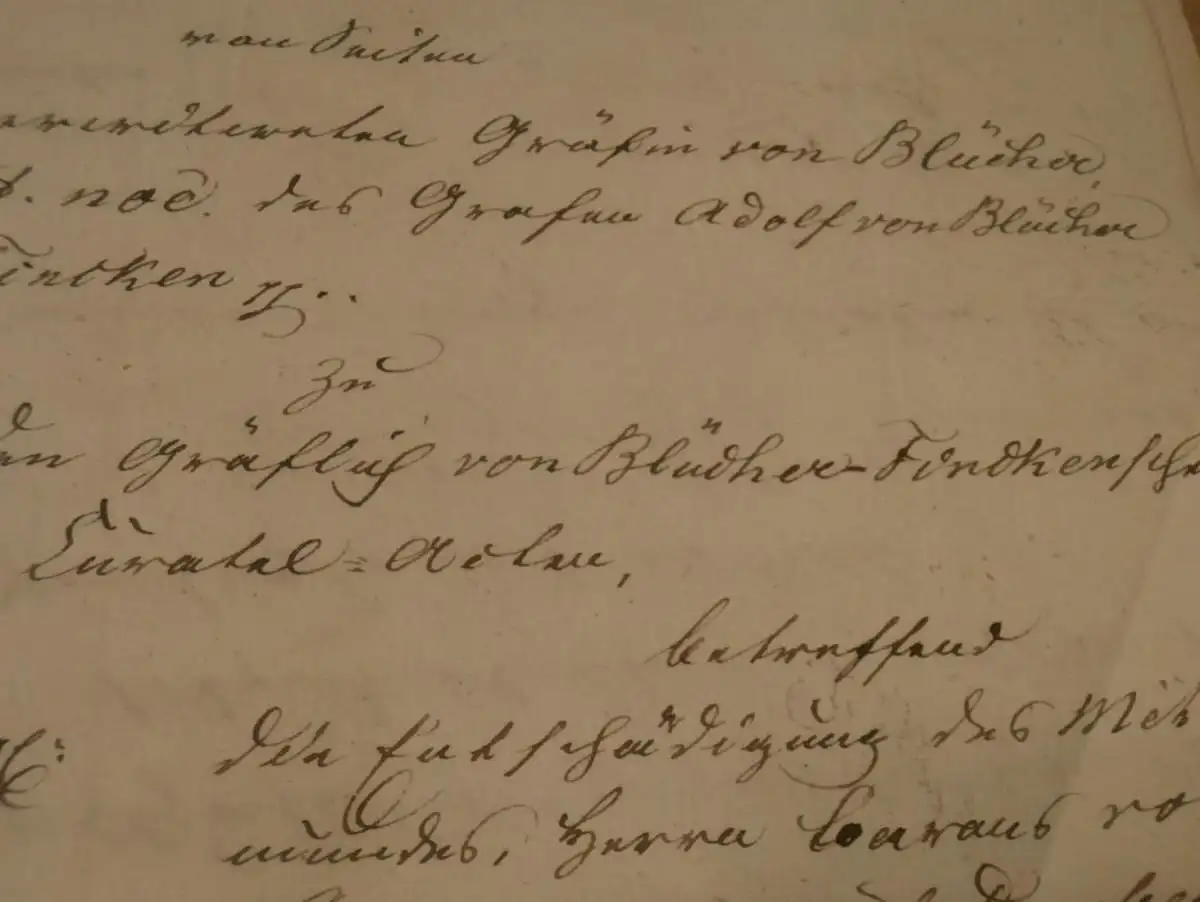 von Seiten
verwittweten Gräfin von Blücher,
t. noẽ. des Grafen Adolf von Blücher
Fincken pp..
zu
den Gräflich von Blücher-Finckensche
Curatel-Acten,
betreffend
die Entschädigung des Mit
mundes, Herrn Barons vo